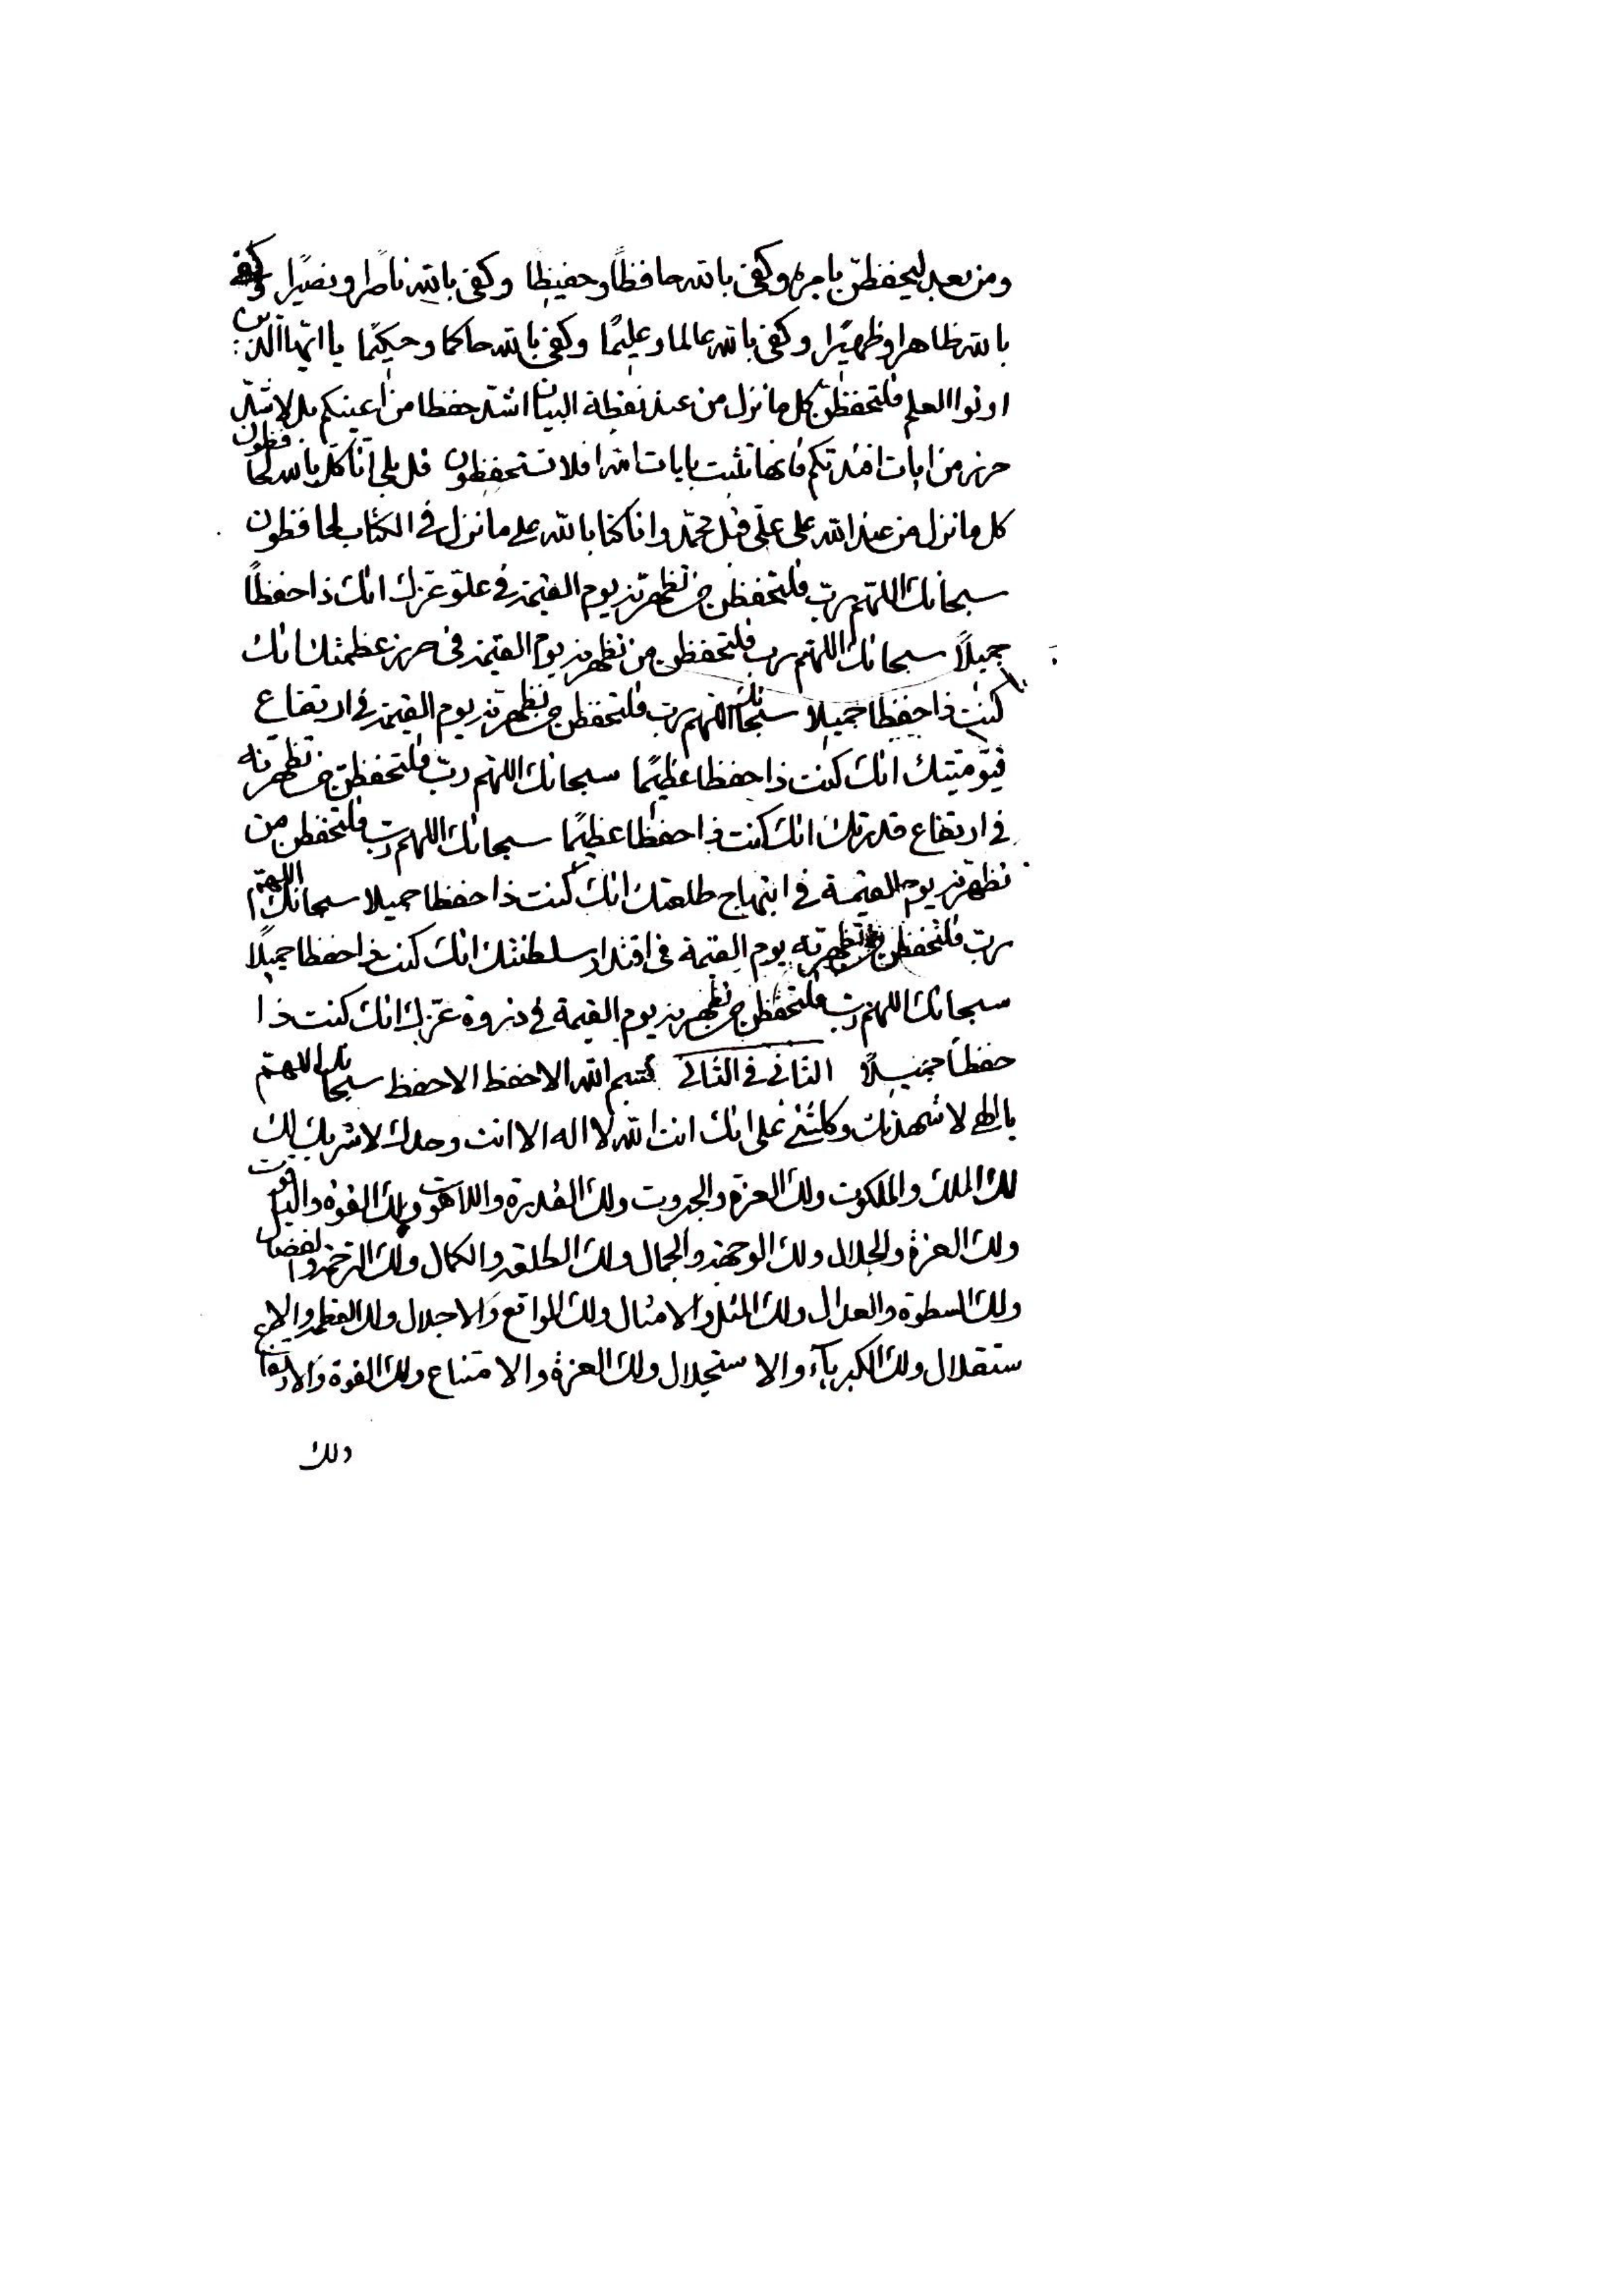 ومن بعد ليحفظن بامره وكفى بالله حافظاً وحفيظا وكفى بالله ناصرا ونصيرًا وكفى
بالله ظاهرا وظهيرًا وكفى بالله عالما وعليمًا وكفى بالله حاكما وحكيمًا يا ايها الذين
اوتوا العلم فلتحفظن كل ما نزل من عند نقطة البيان اشد حفظا من اعينكم بل لاشد
حرز من ايات افئدتكم فانها تثبت بايات الله افلا تستحفظون قل بلى انا كل بالله لحافظون
كل ما نزل من عند الله على علي قبل محمد وانا كنا بالله على ما نزل في الكتاب لحافظون
سبحانك اللهم رب فلتحفظن من تظهرنه يوم القيمة في علو عزك انك ذا حفظاً
جميلاً سبحانك اللهم رب فلتحفظن من تظهرنه يوم القيمة في حرز عظمتك انك
كنت ذا حفظا جميلا سبحانك اللهم رب فلتحفظن من تظهرنه يوم القيمة في ارتفاع
قيوميتك انك كنت ذا حفظا عظيمًا سبحانك اللهم رب فلتحفظن من تظهرنه
في ارتفاع قدرتك انك كنت ذا حفظا عظيمًا سبحانك اللهم رب فلتحفظن من
تظهرنه يوم القيمة في ابتهاج طلعتك انك كنت ذا حفظا جميلا سبحانك اللهم
رب فلتحفظن من تظهرنه يوم القيمة في اقتدار سلطنتك انك كنت ذا حفظا جميلاً
سبحانك اللهم رب فلتحفظن من تظهرنه يوم القيمة في ذروة عزك انك كنت ذا
حفظاً جميلاً الثاني في الثاني بسم الله الاحفظ الاحفظ سبحانك اللهم
يا الهي لاشهدنك وكلشئ على انك انت الله لا اله الا انت وحدك لا شريك لك
لك الملك والملكوت ولك العزة والجبروت ولك القدرة واللاهوت ولك القوة والياقوت
ولك العزة والجلال ولك الوجهة والجمال ولك الطلعة والكمال ولك الرحمة والفضال
ولك السطوة والعدال ولك المثل والامثال ولك المواقع والاجلال ولك العظمة والا
ستقلال ولك الكبرياء والاستجلال ولك العزة والامتناع ولك القوة والارتفاع
ولك